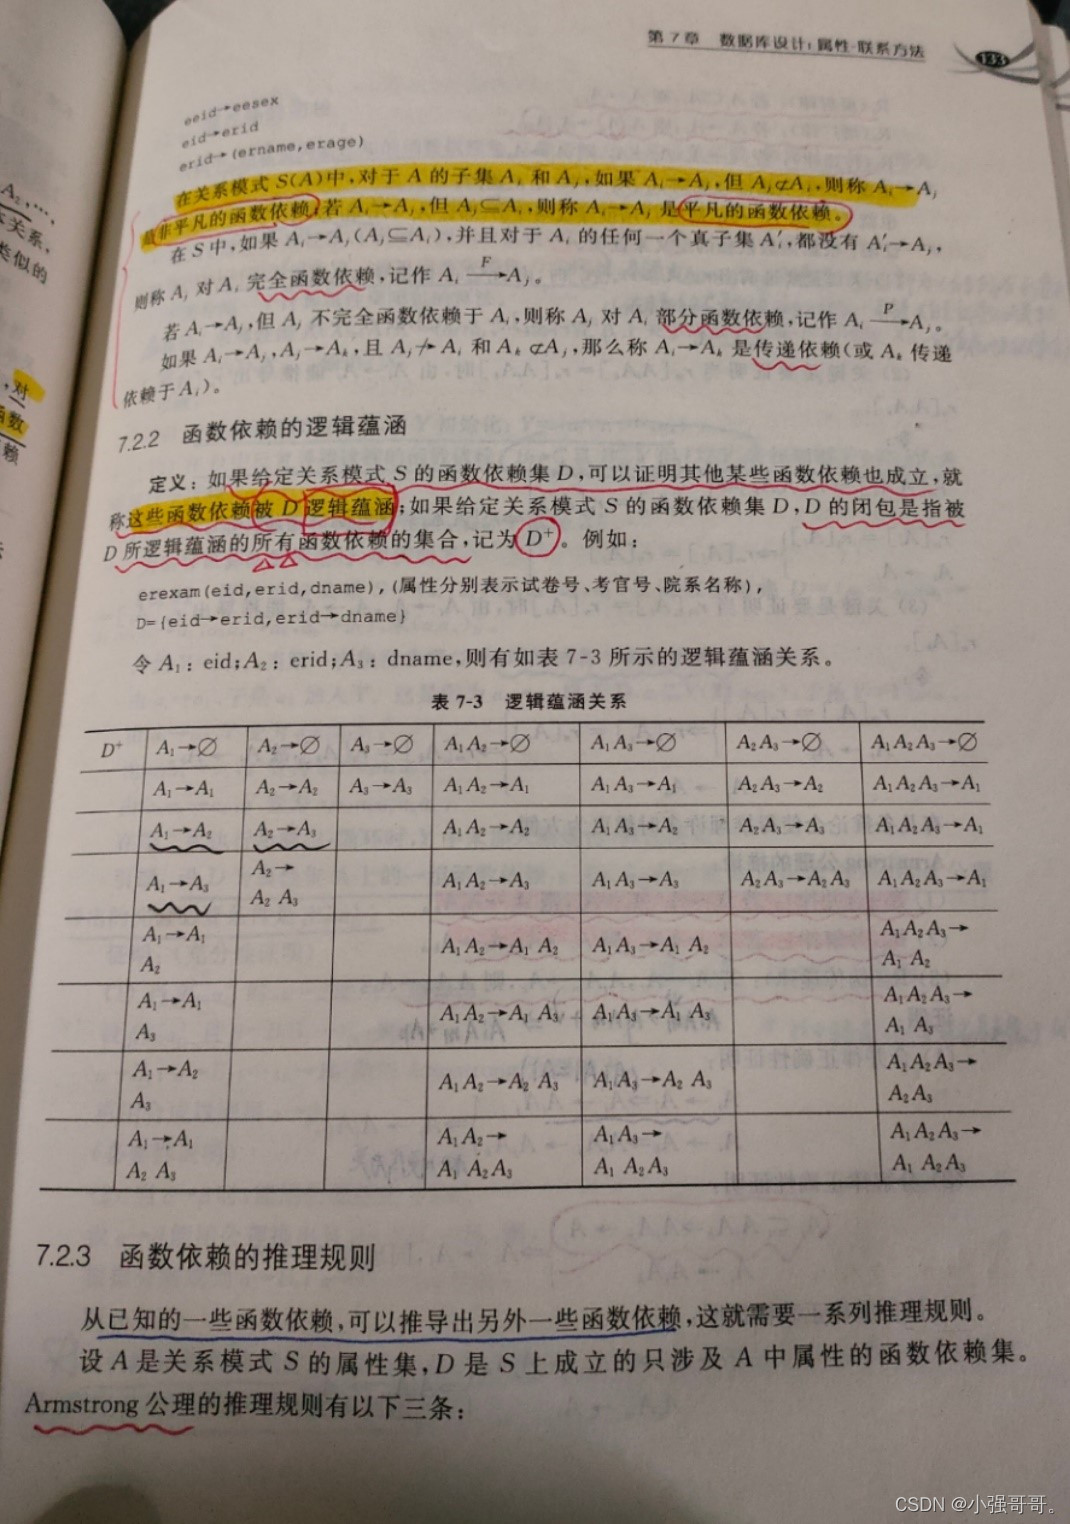 第7章 数据库设计:属性-联系方法
133
eeid→eesex
eid→erid
erid→(ername,erage)
在关系模式 S(A)中,对于 A 的子集 Aᵢ 和 Aⱼ,如果 Aᵢ→Aⱼ,但 Aⱼ⊄Aᵢ,则称 Aᵢ→Aⱼ
是非平凡的函数依赖;若 Aᵢ→Aⱼ,但 Aⱼ⊆Aᵢ,则称 Aᵢ→Aⱼ 是平凡的函数依赖。
在 S 中,如果 Aᵢ→Aⱼ(Aⱼ⊆Aᵢ),并且对于 Aᵢ 的任何一个真子集 A′ᵢ,都没有 A′ᵢ→Aⱼ,
则称 Aⱼ 对 Aᵢ 完全函数依赖,记作 Aᵢ —F→ Aⱼ。
若 Aᵢ→Aⱼ,但 Aⱼ 不完全函数依赖于 Aᵢ,则称 Aⱼ 对 Aᵢ 部分函数依赖,记作 Aᵢ —P→ Aⱼ。
如果 Aᵢ→Aⱼ,Aⱼ→Aₖ,且 Aⱼ↛Aᵢ 和 Aₖ⊄Aⱼ,那么称 Aᵢ→Aₖ 是传递依赖(或 Aₖ 传递
依赖于 Aᵢ)。
7.2.2 函数依赖的逻辑蕴涵
定义:如果给定关系模式 S 的函数依赖集 D,可以证明其他某些函数依赖也成立,就
称这些函数依赖被 D 逻辑蕴涵;如果给定关系模式 S 的函数依赖集 D,D 的闭包是指被
D 所逻辑蕴涵的所有函数依赖的集合,记为 D⁺。例如:
erexam(eid,erid,dname),(属性分别表示试卷号、考官号、院系名称),
D={eid→erid,erid→dname}
令 A₁: eid;A₂: erid;A₃: dname,则有如表 7-3 所示的逻辑蕴涵关系。
表 7-3 逻辑蕴涵关系
D⁺ A₁→∅ A₂→∅ A₃→∅ A₁A₂→∅ A₁A₃→∅ A₂A₃→∅ A₁A₂A₃→∅
A₁→A₁ A₂→A₂ A₃→A₃ A₁A₂→A₁ A₁A₃→A₁ A₂A₃→A₂ A₁A₂A₃→A₁
A₁→A₂ A₂→A₃ A₁A₂→A₂ A₁A₃→A₂ A₂A₃→A₃ A₁A₂A₃→A₁
A₁→A₃ A₂→ A₁A₂→A₃ A₁A₃→A₃ A₂A₃→A₂A₃ A₁A₂A₃→A₁
A₂ A₃
A₁→A₁ A₁A₂→A₁ A₂ A₁A₃→A₁ A₂ A₁A₂A₃→
A₂ A₁ A₂
A₁→A₁ A₁A₂→A₁ A₃ A₁A₃→A₁ A₃ A₁A₂A₃→
A₃ A₁ A₃
A₁→A₂ A₁A₂→A₂ A₃ A₁A₃→A₂ A₃ A₁A₂A₃→
A₃ A₂A₃
A₁→A₁ A₁A₂→ A₁A₃→ A₁A₂A₃→
A₂ A₃ A₁ A₂A₃ A₁ A₂A₃ A₁ A₂A₃
7.2.3 函数依赖的推理规则
从已知的一些函数依赖,可以推导出另外一些函数依赖,这就需要一系列推理规则。
设 A 是关系模式 S 的属性集,D 是 S 上成立的只涉及 A 中属性的函数依赖集。
Armstrong 公理的推理规则有以下三条:
A₂,…,
关系,
类似的
,对
函数
赖
CSDN @小强哥哥。